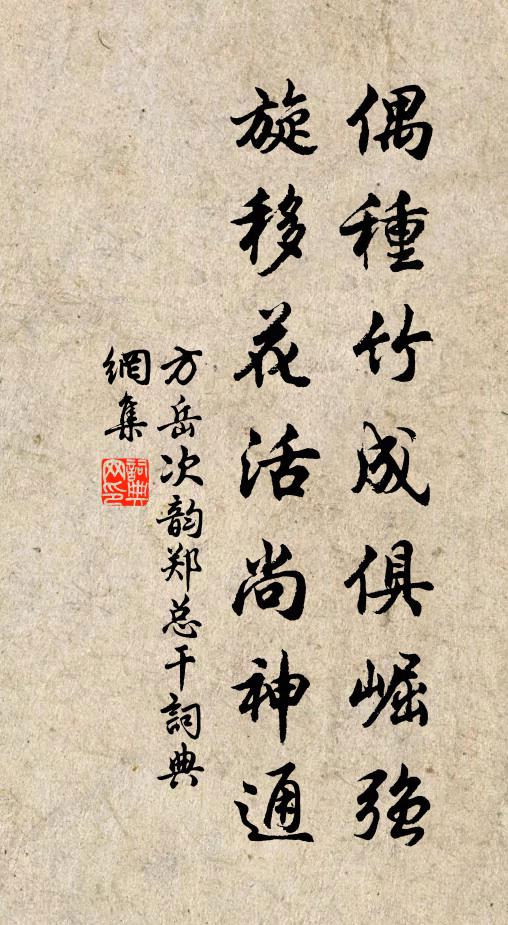 偶種竹成俱崛强
旋移花活尚神通
方岳次韵郑总干詞典
網集
詞典网印